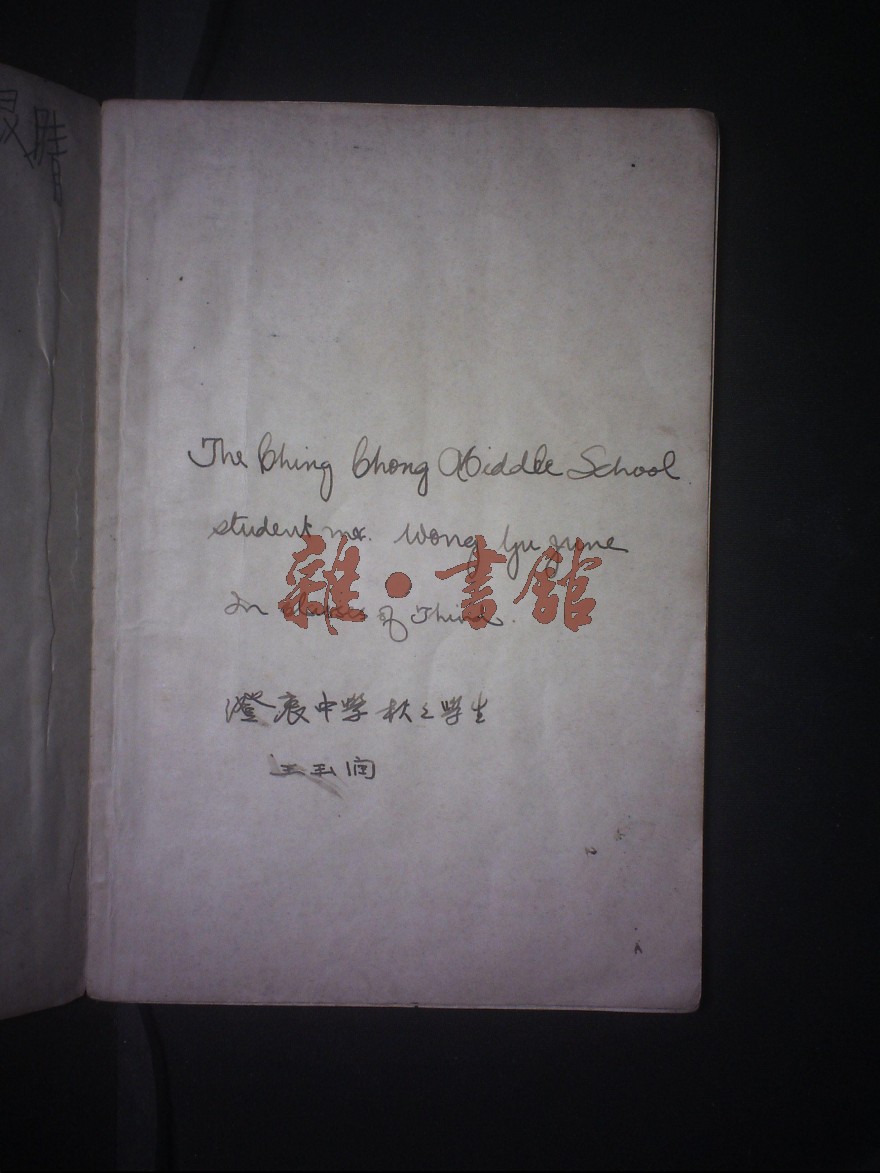 The Ching Chong Middle School
student mr. Wong Yu June
In classes of Third.
雜·書館
澄衷中學秋之學生
王玉润